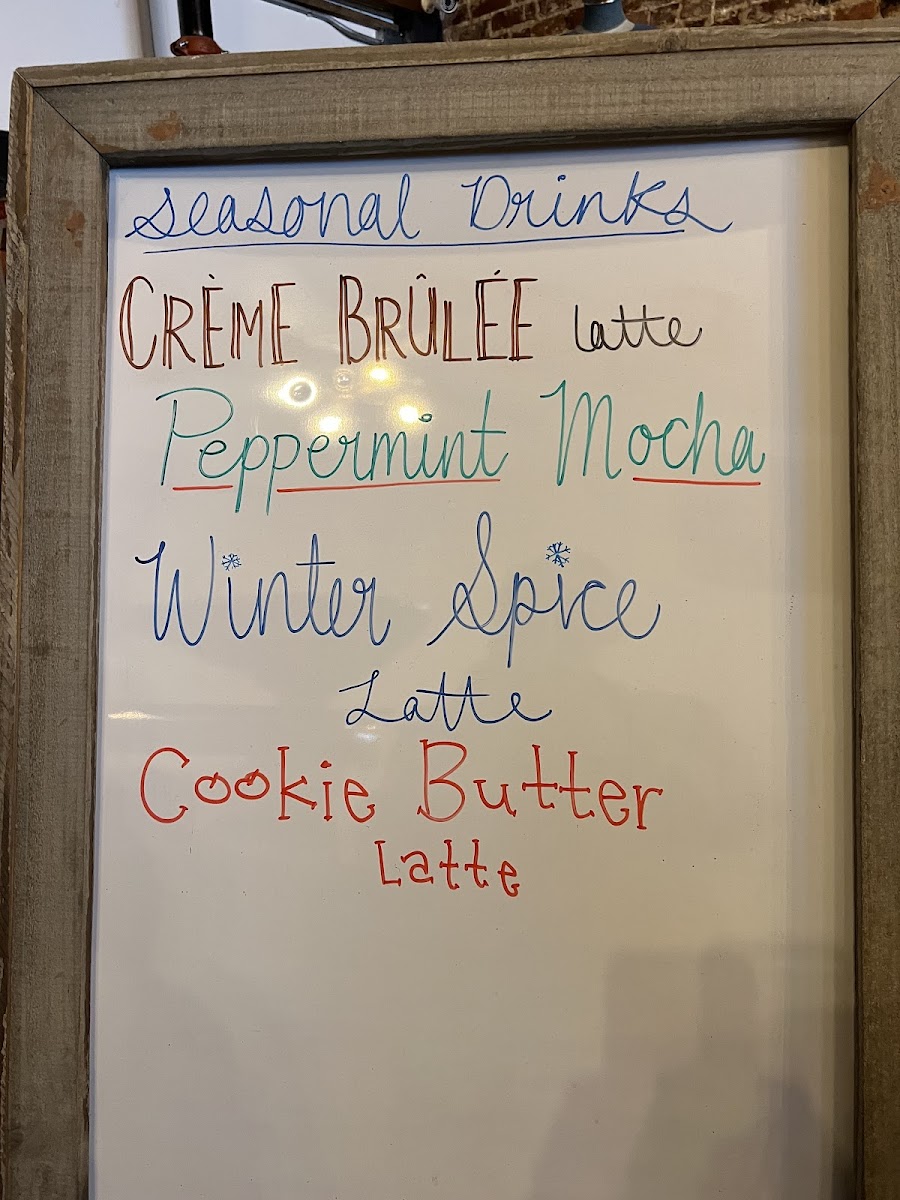 Seasonal Drinks
CRÈME BRÛLÉE latte
Peppermint Mocha
Winter Spice
Latte
Cookie Butter
Latte